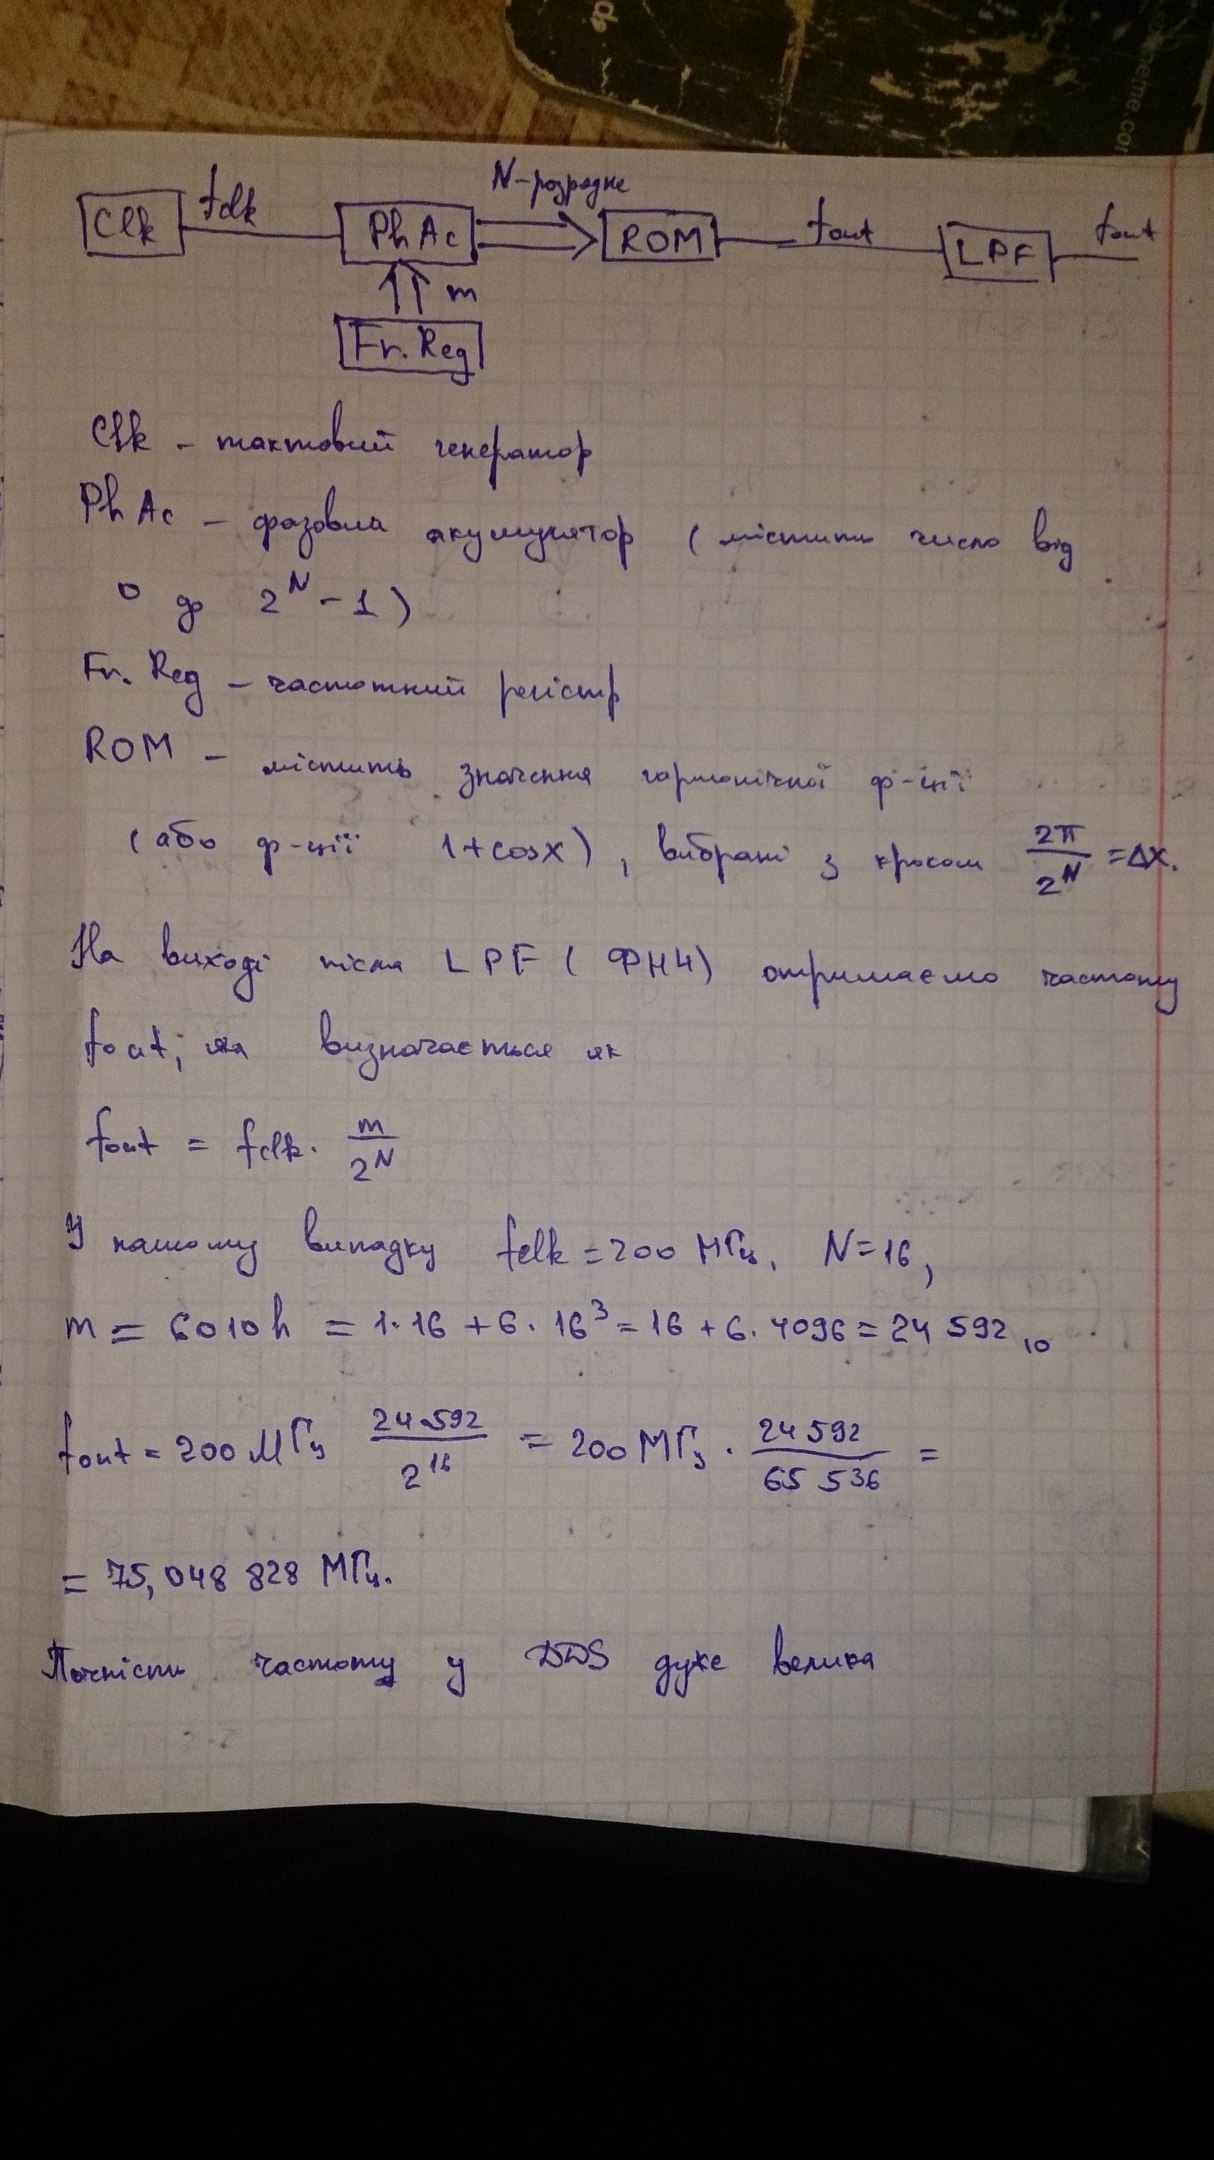 N-розрядне
Clk fclk Ph Ac ROM fout LPF fout
m
Fr. Reg
Clk – тактовий генератор
Ph Ac – фазовий акумулятор (містить число від
0 до 2^N - 1)
Fr. Reg – частотний регістр
ROM – містить значення гармонічної ф-ції
(або ф-ції 1+cosx), вибрані з кроком 2π/2^N = Δx.
На виході після LPF (ФНЧ) отримаємо частоту
fout, яка визначається як
fout = fclk · m/2^N
У нашому випадку fclk = 200 МГц, N=16,
m = 6010h = 1·16 + 6·16³ = 16 + 6·4096 = 24 592₁₀
fout = 200 МГц 24 592/2^16 = 200 МГц · 24 592/65 536 =
= 75,048 828 МГц.
Точність частоту у DDS дуже велика